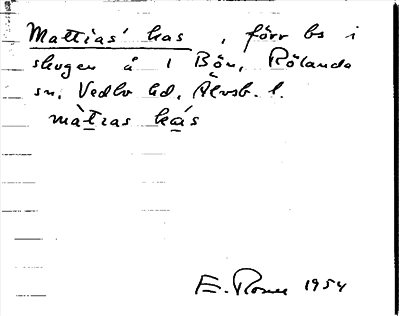 Mattias' kas, förr bs i
skogen å 1 Bön, Rölanda
sn, Vedbo hd, Älvsb. l.
màt̲ias ka̲s
E. Rosell 1954